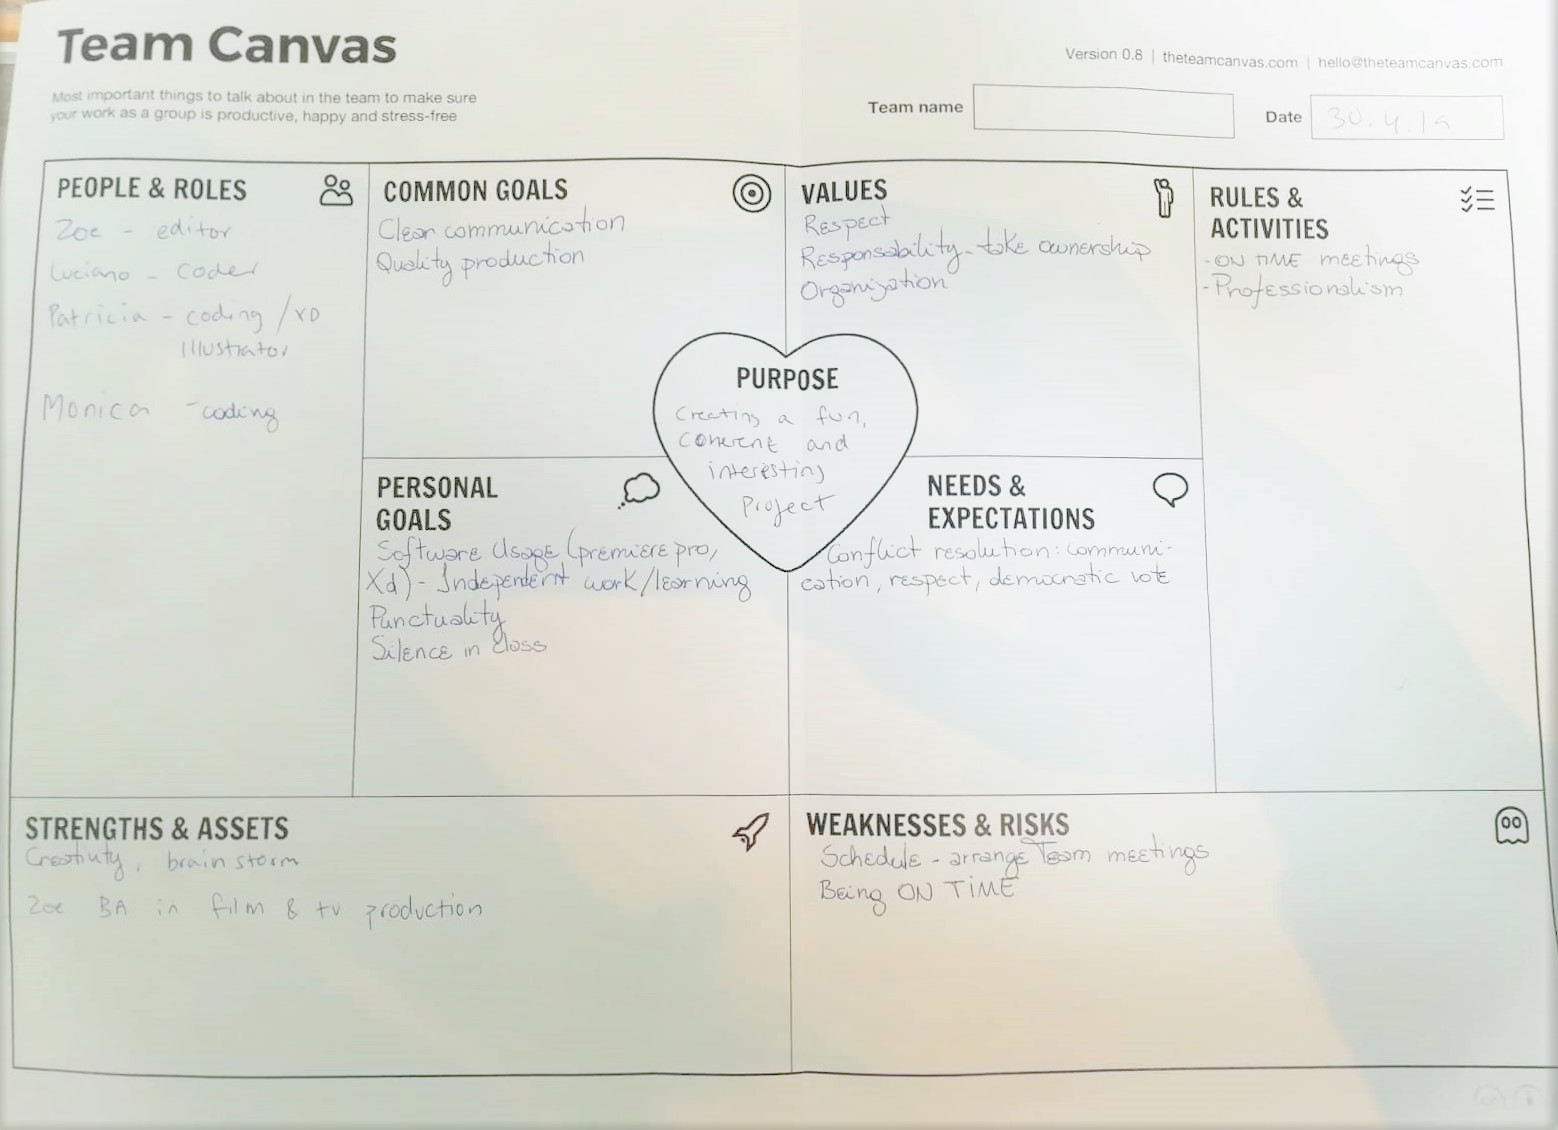 Team Canvas
Most important things to talk about in the team to make sure
your work as a group is productive, happy and stress-free
Version 0.8 | theteamcanvas.com | hello@theteamcanvas.com
Team name
Date
30.4.19
PEOPLE & ROLES
Zoe - editor
Luciano - coder
Patricia - coding / XD
Illustrator
Monica - coding
COMMON GOALS
Clear communication
Quality production
VALUES
Respect
Responsability - take ownership
Organization
RULES &
ACTIVITIES
- ON TIME meetings
- Professionalism
PURPOSE
Creating a fun,
coherent and
interesting
Project
PERSONAL
GOALS
Software Usage (premiere pro,
Xd) - Independent work/learning
Punctuality
Silence in class
NEEDS &
EXPECTATIONS
Conflict resolution: communi-
cation, respect, democratic vote
STRENGTHS & ASSETS
Creativity, brainstorm
Zoe BA in film & tv production
WEAKNESSES & RISKS
Schedule - arrange Team meetings
Being ON TIME